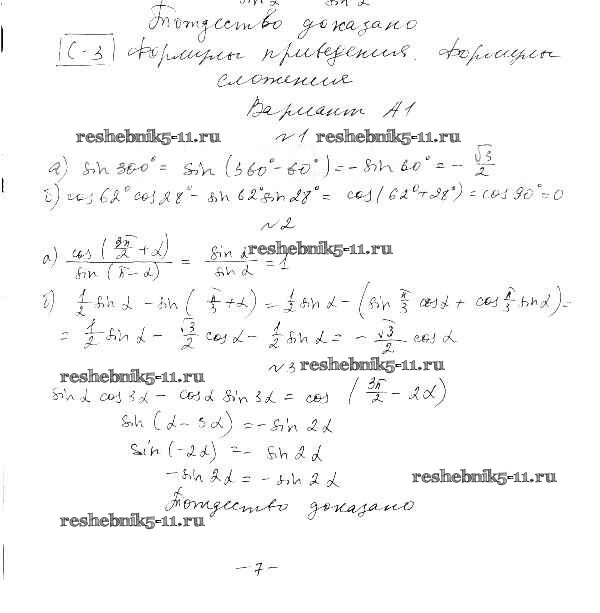 sin 2 sin 2
Тождество доказано
С-3 Формулы приведения. Формулы
сложения
Вариант А1
reshebnik5-11.ru №1 reshebnik5-11.ru
а) sin 300° = sin (360° - 60°) = - sin 60° = - √3/2
б) cos 62° cos 28° - sin 62° sin 28° = cos (62° + 28°) = cos 90° = 0
№2
а) cos (3π/2 + α) / sin (π - α) = sin α / sin α = 1 reshebnik5-11.ru
б) 1/2 sin α - sin (π/3 + α) = 1/2 sin α - (sin π/3 cos α + cos π/3 sin α) =
= 1/2 sin α - √3/2 cos α - 1/2 sin α = - √3/2 cos α
№3 reshebnik5-11.ru
reshebnik5-11.ru
sin α cos 3α - cos α sin 3α = cos (3π/2 - 2α)
sin (α - 3α) = - sin 2α
sin (-2α) = - sin 2α
- sin 2α = - sin 2α reshebnik5-11.ru
Тождество доказано
reshebnik5-11.ru
- 7 -